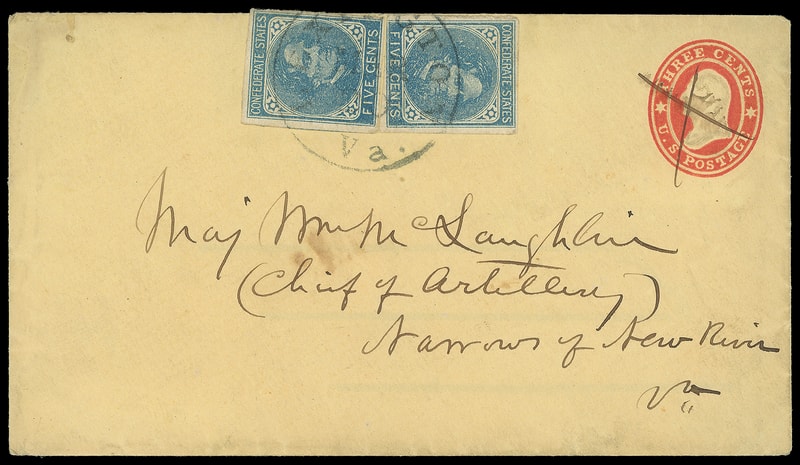 CONFEDERATE STATES
FIVE CENTS
FIVE CENTS
CONFEDERATE STATES
Va.
THREE CENTS
U.S. POSTAGE
Maj Wm McLaughlin
(Chief of Artillery)
Narrows of New River
Va